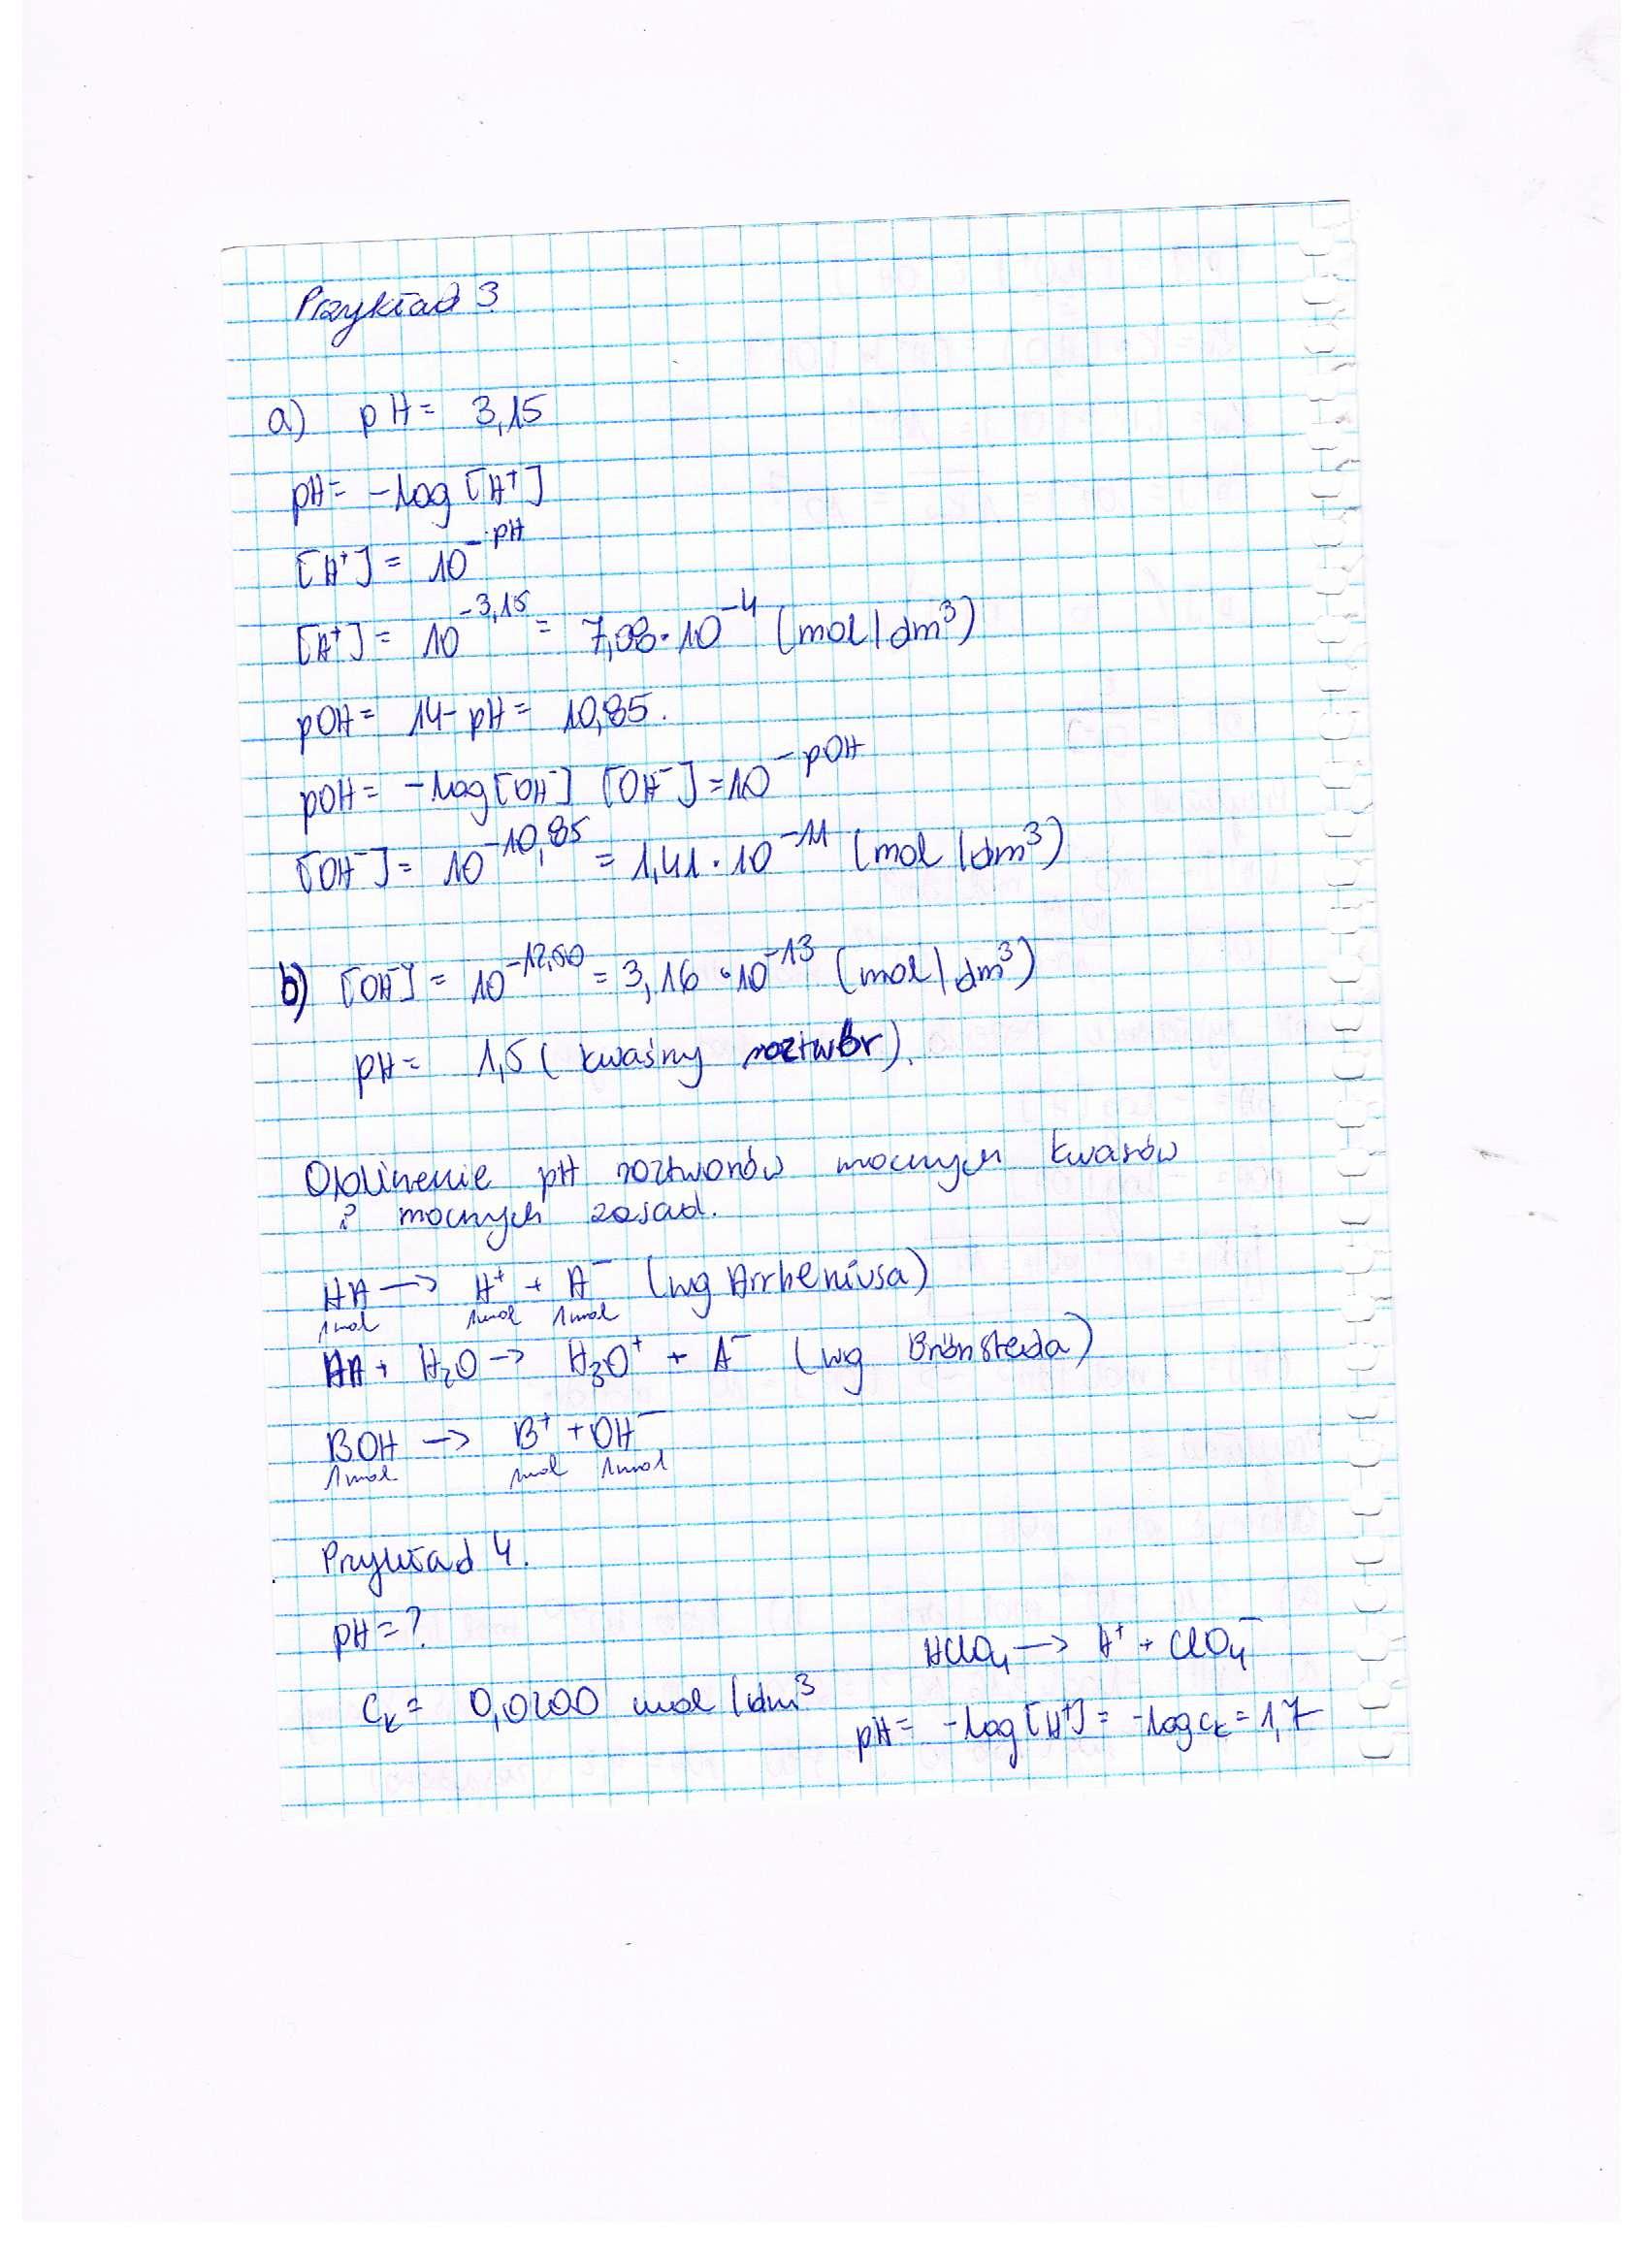 Przykład 3
a) pH = 3,15
pH = -log [H⁺]
[H⁺] = 10^-pH
[H⁺] = 10^-3,15 = 7,08·10^-4 (mol/dm³)
pOH = 14-pH = 10,85.
pOH = -log[OH⁻] [OH⁻] = 10^-pOH
[OH⁻] = 10^-10,85 = 1,41·10^-11 (mol/dm³)
b) [OH⁻] = 10^-12,50 = 3,16·10^-13 (mol/dm³)
pH = 1,5 (kwaśny roztwór).
Obliczenie pH roztworów mocnych kwasów
i mocnych zasad.
HA → H⁺ + A⁻ (wg Arrheniusa)
1mol 1mol 1mol
HA + H₂O → H₃O⁺ + A⁻ (wg Brönsteda)
BOH → B⁺ + OH⁻
1mol 1mol 1mol
Przykład 4.
pH = ?
HClO₄ → H⁺ + ClO₄⁻
c_k = 0,0200 mol/dm³
pH = -log[H⁺] = -log c_k = 1,7